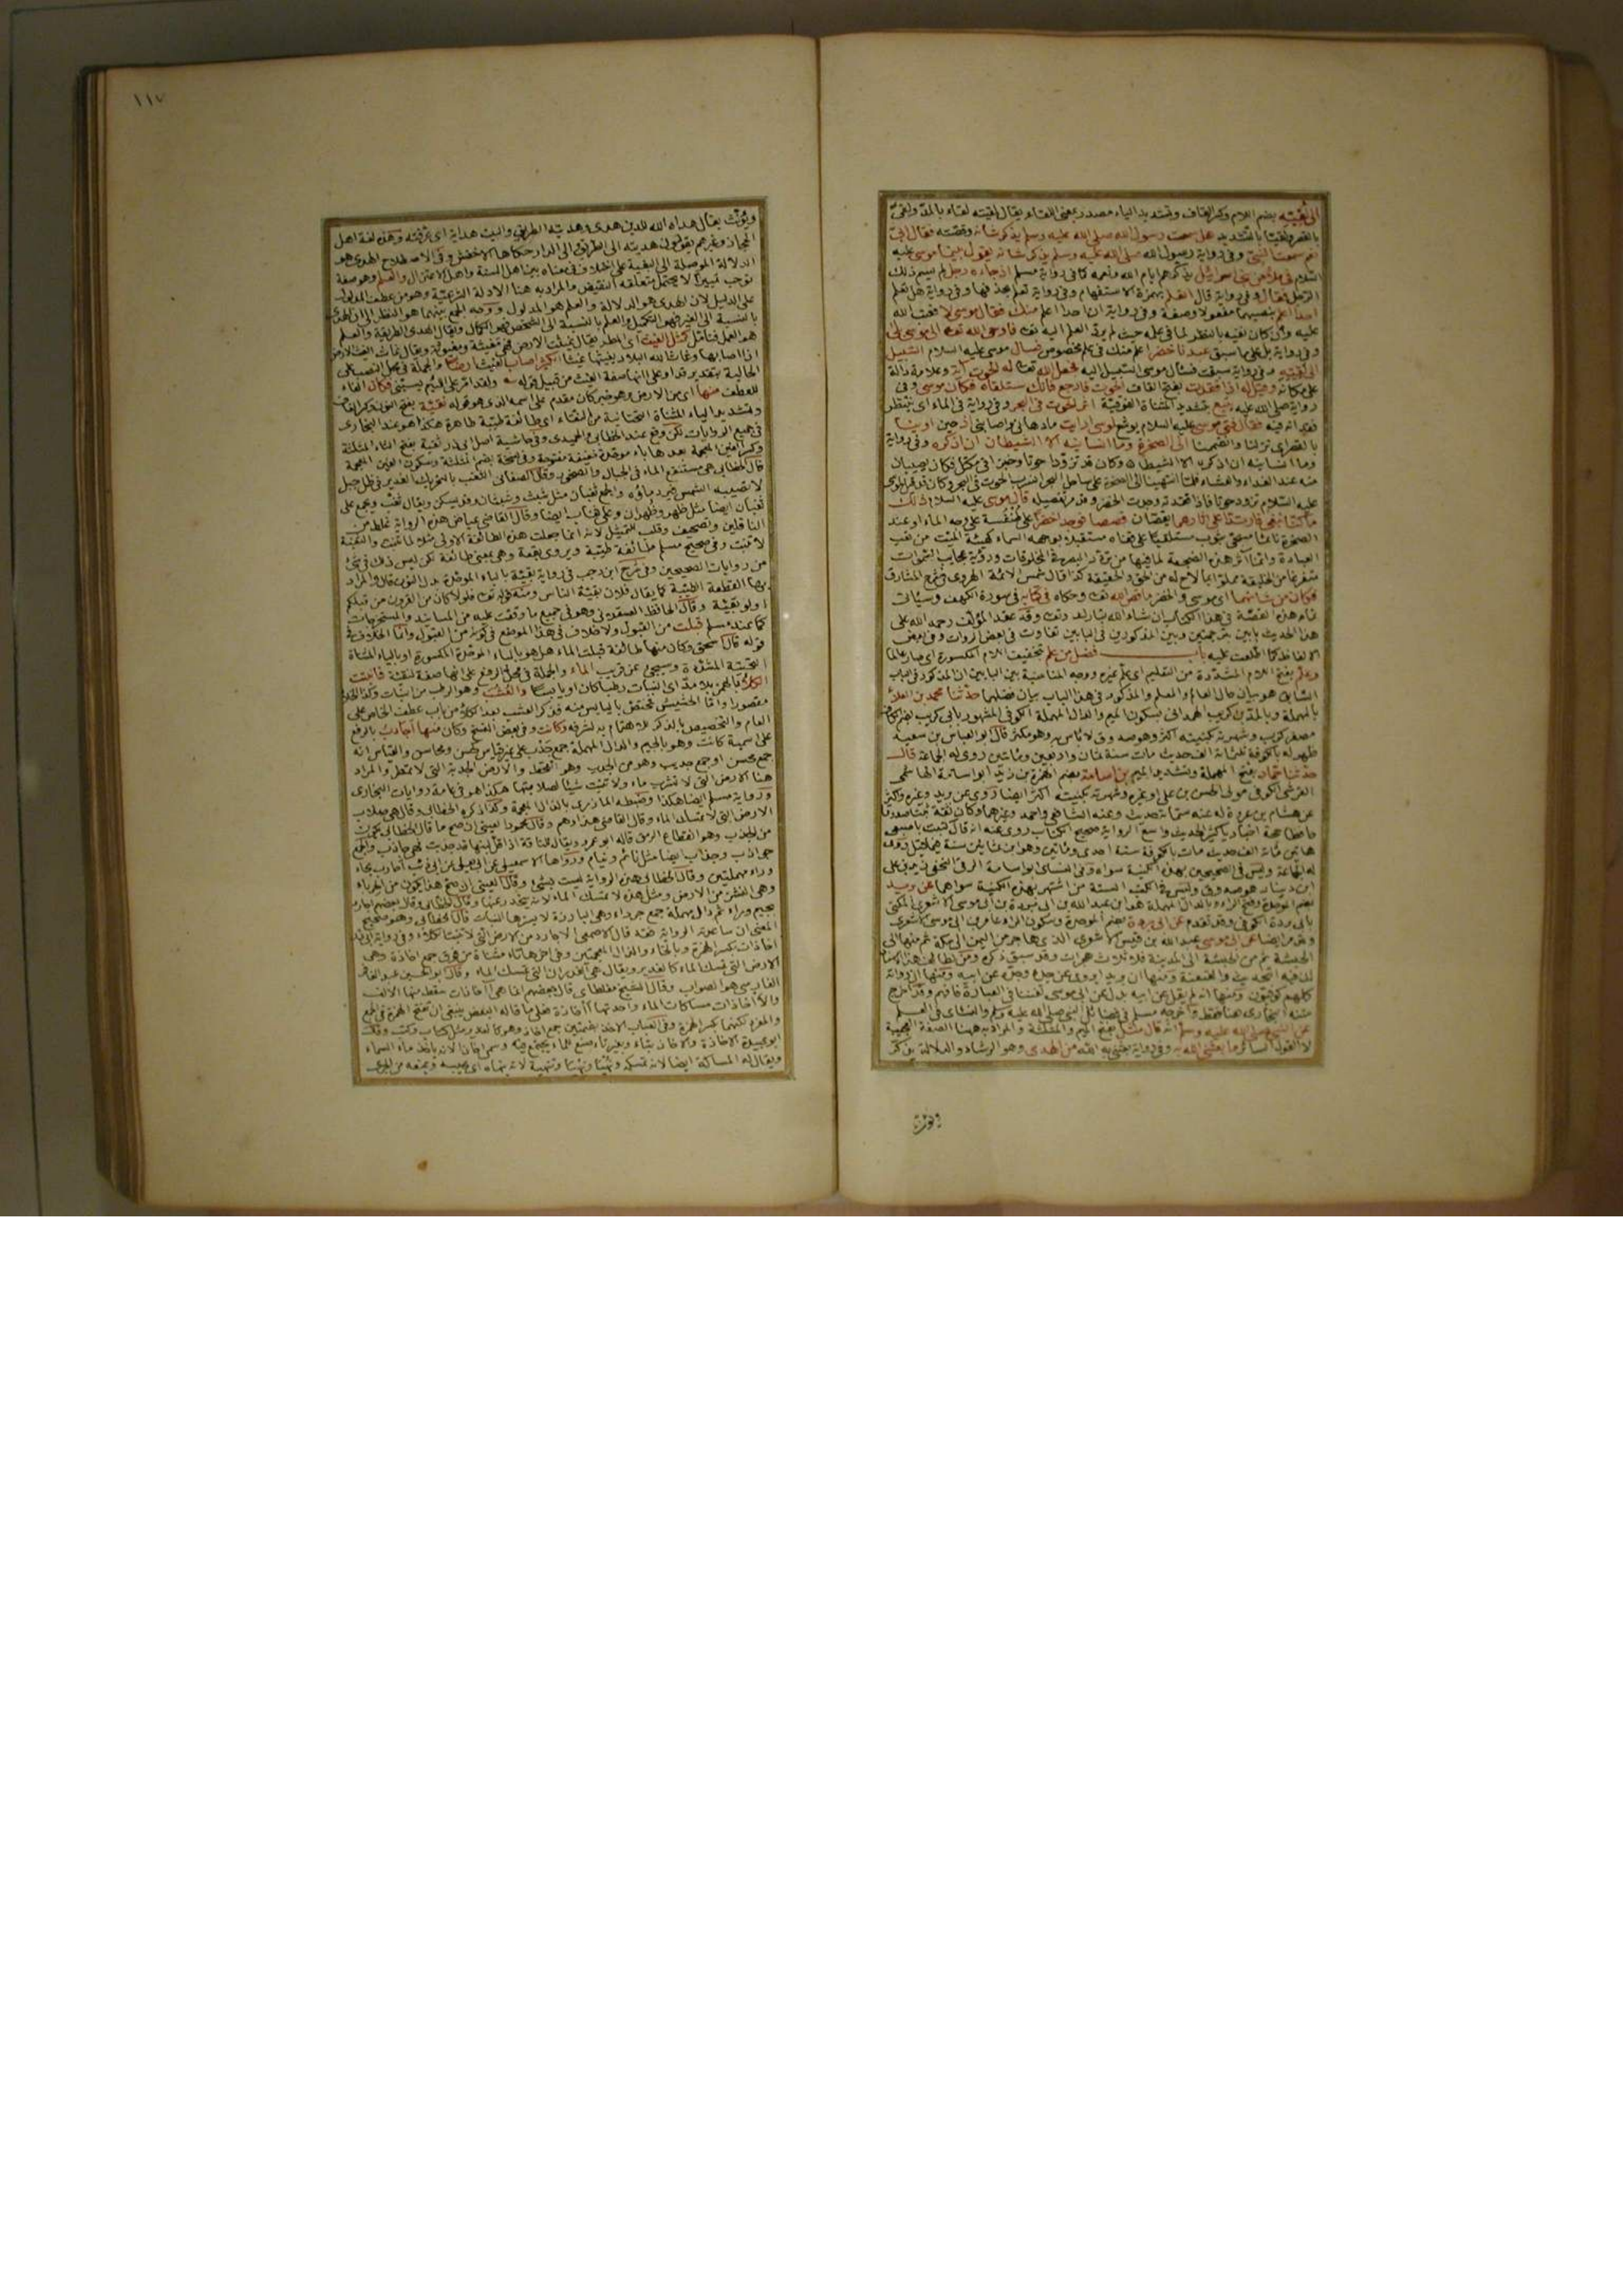 الى لقيته بضم اللام وكسر القاف وتشديد الياء مصدر بمعنى اللقاء يقال لقيته لقاء بالمد ولقى
بالقصر ولقيا بالتشديد هل سمعت رسول الله صلى الله عليه وسلم يذكر شانه وقصته فقال ابى
نعم سمعت النبى وفى رواية رسول الله صلى الله عليه وسلم يذكر شانه يقول بينما موسى عليه
السلام فى ملأ من بنى اسرائيل يذكرهم ايام الله ونعمه كما فى رواية مسلم اذ جاءه رجل لم يسم ذلك
الرجل فقال وفى رواية قال اتعلم بهمزة الاستفهام وفى رواية تعلم بحذفها وفى رواية هل تعلم
احدا اعلم بنصبهما مفعولا وصفة وفى رواية ان احدا اعلم منك فقال موسى لا فعتب الله
عليه وان كان نفيه بالنظر لما فى علمه حيث لم يرد العلم اليه تعالى فاوحى الله تعالى الى موسى بلى
وفى رواية بل على ما سبق عبدنا خضر اعلم منك فى علم مخصوص فسال موسى عليه السلام السبيل
الى لقيه وفى رواية سبقت فسئال موسى السبيل اليه فجعل الله تعالى له الحوت آية وعلامة دالة
على مكانه وقيل له اذا فقدت بفتح القاف الحوت فارجع فانك ستلقاه فكان موسى وفى
رواية صلى الله عليه يتبع بتشديد المثناة الفوقية اثر الحوت فى البحر وفى رواية فى الماء اى ينتظر
فقدانه فيه فقال فتى موسى عليه السلام يوشع لموسى ارايت ما دهانى واصابنى اذ حين اوينا
بالقصر اى نزلنا وانضممنا الى الصخرة وما انسانيه الا الشيطان ان اذكره وفى رواية
وما انسانيه ان اذكره الا الشيطان وكان قد تزودا حوتا وخبزا فى مكتل فكانا يصيبان
منه عند الغداء والعشاء فلما انتهينا الى الصخرة على ساحل البحر انسرب الحوت فى البحر وكان قد قيل لموسى
عليه السلام تزود حوتا فاذا فقدته وجدت الخضر وقد مر تفصيله قال موسى عليه السلام ذلك
ما كنا نبغى فارتدا على آثارهما يقصان قصصا فوجدا خضرا على طنفسة على وجه الماء او عند
الصخرة نائما مسجى بثوب مستلقيا على قفاه مستقبلا بوجهه السماء كهيئة الميت من تعب
العبادة
فكان من شانهما اى موسى والخضر ما قص الله تعالى وحكاه فى كتابه فى سورة الكهف وسيئاتى
تمام هذه القصة فى هذا الكتاب ان شاء الله تبارك وتعالى وقد عقد المؤلف رحمه الله على
هذا الحديث بابين بترجمتين وبين المذكورين فى البابين تفاوت فى بعض الروات وفى بعض
الالفاظ كما اطلعت عليه باب فضل من علم بتخفيف اللام المكسورة اى صار عالما
وعلم بفتح اللام المشددة من التعليم اى علم غيره ووجه المناسبة بين البابين ان المذكور فى الباب
السابق هو بيان حال العالم والمعلم والمذكور فى هذا الباب بيان فضلهما حدثنا محمد بن العلاء
بالمهملة وبالمد بن كريب الهمدانى بسكون الميم والدال المهملة الكوفى المشهور بابى كريب
مصغر كرب وشهرته بكنيته اكثر وهو صدوق لا باس به وهو مكثر قال ابو العباس بن سعيد
ظهر له بالكوفة ثلثمائة الف حديث مات سنة ثمان واربعين ومائتين روى له الجماعة قال
حدثنا حماد بفتح المهملة وتشديد الميم بن اسامة بضم الهمزة بن زيد ابو اسامة الهاشمى
القرشى الكوفى مولى الحسن بن على او غيره وشهرته بكنيته اكثر ايضا روى عن بريد وغيره واكثر
عن هشام بن عروة له عنه ستمائة حديث وعنه الشافعى واحمد وغيرهما وكان ثقة ثبتا صدوقا
حافظا حجة اخباريا كثير الحديث واسع الرواية صحيح الكتاب روى عنه انه قال كتبت باصبعى
هاتين مائة الف حديث مات بالكوفة سنة احدى ومائتين وهو ابن ثمانين سنة فيما قيل روى
له الجماعة وليس فى الصحيحين بهذه الكنية سواه وفى النسائى ابو اسامة الرقى النخعى
ابن دينار هو صدوق وليس فى الكتب الستة من اشتهر بهذه الكنية سواهما عن بريد
بضم الموحدة وفتح الراء وبالدال المهملة هو ابن عبد الله بن ابى بردة بن ابى موسى الاشعرى المكنى
بابى بردة الكوفى وقد تقدم عن ابى بردة بضم الموحدة وسكون الراء عامر بن ابى موسى الاشعرى
وقد مر ايضا عن ابى موسى عبد الله بن قيس الاشعرى الذى هاجر من اليمن الى مكة ثم منها الى
الحبشة ثم من الحبشة الى المدينة فله ثلاث هجرات وقد سبق ذكره ومن لطائف هذا الاسناد
ان فيه التحديث والعنعنة ومنها ان بريدا يروى عن جده وجده عن ابيه ومنها ان رواته
كلهم كوفيون ومنها انه لم يقل عن ابيه بدل عن ابى موسى تفننا فى العبارة فافهم وقد اخرج
متنه البخارى هنا فقط واخرجه مسلم فى فضائل النبى صلى الله عليه وسلم والنسائى فى العلم
عن النبى صلى الله عليه وسلم انه قال مثل بفتح الميم والمثلثة والمراد به ههنا الصفة العجيبة
لا القول السائر ما بعثنى الله به وفى رواية بعثنى به الله من الهدى وهو الرشاد والدلالة يذكر
ويؤنث
١١٧
ويؤنث يقال هداه الله للدين هدى وهديته الطريق والبيت هداية اى عرفته وهذه لغة اهل
الحجاز وغيرهم يقولون هديته الى الطريق والى الدار حكاها الاخفش وفى الاصطلاح الهدى هو
الدلالة الموصلة الى البغية على اختلاف فى معناه بين اهل السنة واهل الاعتزال والعلم وهو صفة
توجب تمييزا لا يحتمل متعلقه النقيض والمراد به هنا الادلة الشرعية وهو من عطف المدلول
على الدليل لان الهدى هو الدلالة والعلم هو المدلول ووجه الجمع بينهما هو النظر الى ان الهدى
بالنسبة الى الغير فهو التكميل والعلم بالنسبة الى الشخص فهو الكمال ويقال الهدى الطريقة والعلم
هو العمل فتامل كمثل الغيث اى المطر يقال غيثت الارض فهى مغيثة ومغيوثة ويقال غاث الغيث الارض
اذا اصابها وغاث الله البلاد يغيثها غيثا الكثير اصاب الغيث ارضا والجملة فى محل النصب على
الحالية بتقدير قد او على انها صفة الغيث من قبيل قوله ولقد امر على اللئيم يسبنى فكان الفاء
للعطف منها اى من الارض وهو خبر كان مقدم على اسمه الذى هو قوله نقية بفتح النون وكسر القاف
وتشديد الياء المثناة التحتانية من النقاء اى طائفة طيبة طاهرة هكذا هو عند البخارى
فى جميع الروايات لكن وقع عند الخطابى والحميدى وفى حاشية اصل ابى ذر ثغبة بفتح الثاء المثلثة
وكسر الغين المعجمة بعدها باء موحدة خفيفة مفتوحة وفى نسخة بضم المثلثة وسكون الغين المعجمة
قال الخطابى هى مستنقع الماء فى الجبال والصخور وقال الصغانى الثغب بالتحريك الغدير فى ظل جبل
لا تصيبه الشمس فيبرد ماؤه والجمع ثغبان مثل شبث وشبثان وقد يسكن ويقال ثغب ويجمع على
ثغبان ايضا مثل ظهر وظهران وعلى ثغاب ايضا وقال القاضى عياض هذه الرواية غلط من
الناقلين وتصحيف وقلب للتمثيل لانه انما جعلت هذه الطائفة الاولى مثلا لما تنبت والثغبة
لا تنبت وفى صحيح مسلم طائفة طيبة ويروى بقعة وهى بمعنى طائفة لكن ليس ذلك فى شئ
من روايات الصحيحين وفى شرح ابن رجب فى رواية بقية بالباء الموحدة بدل النون قال والمراد
بها القطعة الطيبة كما يقال فلان بقية الناس ومنه قوله تعالى فلولا كان من القرون من قبلكم
اولو بقية وقال الحافظ العسقلانى وهو فى جميع ما وقفت عليه من المسانيد والمستخرجات
كما عند مسلم قبلت من القبول ولا خلاف فى هذا الموضع فى كونه من القبول وانما الخلاف فى
قوله قال اسحق وكان منها طائفة قيلت الماء هل هو بالباء الموحدة المكسورة او بالياء المثناة
التحتية المشددة وسيجئ عن قريب الماء والجملة فى محل الرفع على انها صفة لنقية فانبتت
الكلأ بالهمز بلا مد اى النبات رطبا كان او يابسا والعشب وهو الرطب من النبات وكذا الخلا
مقصورا واما الحشيش فمختص باليابس منه فذكر العشب بعد الكلأ من باب عطف الخاص على
العام والتخصيص بالذكر للاهتمام به لشرفه وكانت وفى بعض النسخ وكان منها اجادب بالرفع
على اسمية كانت وهو بالجيم والدال المهملة جمع جدب على غير قياس كحسن ومحاسن والقياس انه
جمع محسن او جمع جديب وهو من الجدب وهو القحط والارض الجدبة التى لا تمطر والمراد
هنا الارض التى لا تشرب ماء ولا تنبت شيئا لصلابتها هكذا هو فى عامة روايات البخارى
ورواية مسلم ايضا هكذا وضبطه المازرى بالذال المعجمة وكذا ذكره الخطابى وقال هى صلاب
الارض التى لا تمسك الماء وقال القاضى هذا وهم وقال العينى ان صح ما قال الخطابى يكون
من الجذب وهو انقطاع الريق قاله ابو عمرو ويقال للناقة اذا قل لبنها قد جذبت فهى جاذب والجمع
جواذب وجذاب ايضا مثل نائم ونيام ورواها الاسمعيلى عن ابى يعلى عن ابى كريب احارب بحاء
وراء مهملتين وقال الخطابى هذه الرواية ليست بشئ وقال العينى ان صح هذا يكون من الحرباء
وهى النشز من الارض ومثل هذه لا تمسك الماء لانه ينحدر عنها وقال الخطابى وقال بعضهم اجارد
بجيم وراء ثم دال مهملة جمع جرداء وهى البارزة لا يسترها النبات قال الخطابى وهو صحيح
المعنى ان ساعدته الرواية قال الاصمعى الاجارد من الارض التى لا تنبت الكلأ وفى رواية ابى ذر
اخاذات بكسر الهمزة وبالخاء والذال المعجمتين وفى اخرها تاء مثناة من فوق جمع اخاذة وهى
الارض التى تمسك الماء كالغدير ويقال هى الغدران التى تمسك الماء وقال ابو الحسين عبد الغافر
الفارسى هو الصواب وقال الشيخ مغلطاى قال بعضهم انما هى اخاذات سقط منها الالف
والاخاذات مساكات الماء واحدتها اخاذة فعلى ما قاله البعض ينبغى ان تفتح الهمزة فى الجمع
والمفرد لكنهما بكسر الهمزة وفى العباب الاخذ بضمتين جمع اخاذ وهو كالغدير مثل كتاب وكتب وقال
ابو عبيدة الاخاذة والاخاذ بتاء وبغير تاء صنع للماء يجتمع فيه وسمى اخاذا لانه ياخذ ماء السماء
ويقال له المساكة ايضا لانه تمسكه ونهيا ونهيا وتنهية لانه ينهاه اى يحبسه ويمنعه من الجرى